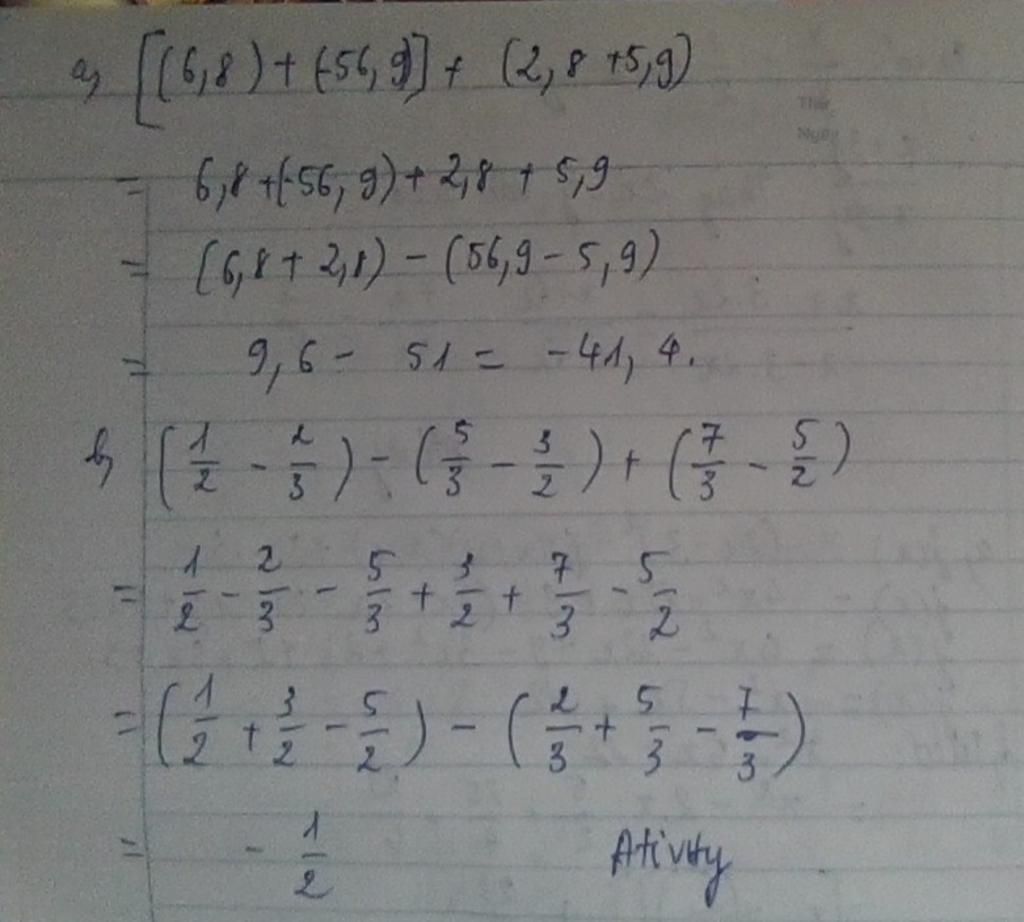 a, [(6,8) + (-56,9)] + (2,8 + 5,9)
= 6,8 + (-56,9) + 2,8 + 5,9
= (6,8 + 2,8) - (56,9 - 5,9)
= 9,6 - 51 = -41,4.
b, (1/2 - 2/3) - (5/3 - 3/2) + (7/3 - 5/2)
= 1/2 - 2/3 - 5/3 + 3/2 + 7/3 - 5/2
= (1/2 + 3/2 - 5/2) - (2/3 + 5/3 - 7/3)
= - 1/2